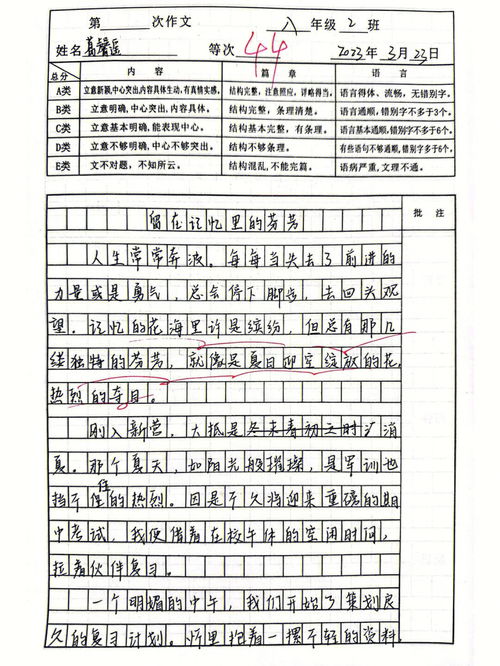 第 次作文 八 年级 2 班
姓名 葛馨遥 等次 44 2023年 3月 23日
总分 内容 篇章 语言
A类 立意新颖,中心突出,内容具体生动,有真情实感。 结构完整,注意照应,详略得当。 语言得体、流畅,无错别字。
B类 立意明确,中心突出,内容具体。 结构完整,条理清楚。 语言通顺,错别字不多于3个。
C类 立意基本明确,能表现中心。 结构基本完整,有条理。 语言基本通顺,错别字不多于6个。
D类 立意不够明确,中心不够突出。 结构不够条理。 有些语句不够通顺,错别字多于6个。
E类 文不对题,不知所云。 结构混乱,不能完篇。 语病严重,文理不通。
批注
留在记忆里的芬芳
人生常常奔波。每每当失去了前进的
力量或是勇气,总会停下脚步,去回头观
望。记忆的花海里许是缤纷,但总有那几
缕独特的芬芳,就像是夏日夜空绽放的花,
热烈的夺目。
刚入新营,大抵是冬末春初主时
夏。那个夏天,如阳光般璀璨,是军训也
挡不住的热烈。因是不久将迎来重磅的期
中考试,我便借着在校午休的空闲时间,
拉着伙伴复习。
一个明媚的中午,我们开始了策划良
久的复习计划。怀里抱着一摞不轻的资料,